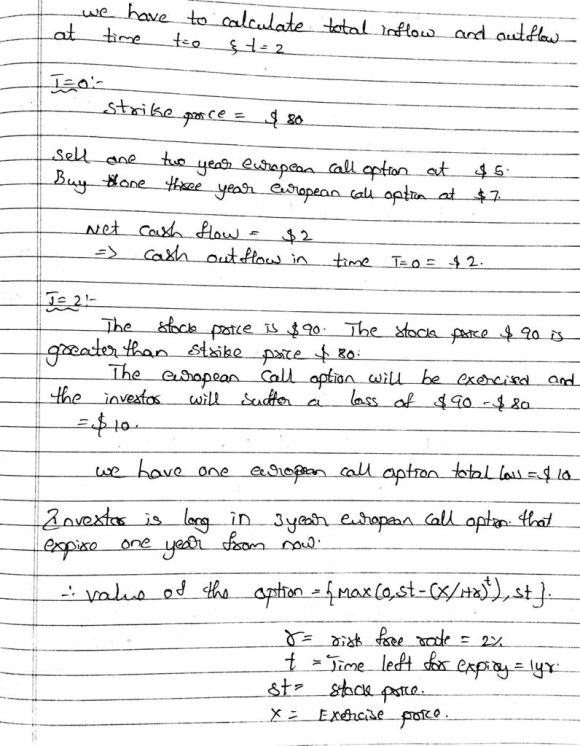 we have to calculate total inflow and outflow
at time t=0 & t=2
T=0:-
Strike price = $ 80
Sell one two year european call option at $5.
Buy one three year european call option at $7.
Net cash flow = $2
=> cash outflow in time T=0 = $2.
T=2:-
The stock price is $90. The stock price $ 90 is
greater than strike price $ 80.
The european call option will be exercised and
the investor will suffer a loss of $90 - $80
= $10.
we have one european call option total loss = $10
Investor is long in 3year european call option that
expire one year from now.
∴ value of the option = {Max(0,st-(X/1+r)^t), st}.
r = risk free rate = 2%
t = Time left for expiry = 1yr.
st = stock price.
X = Exercise price.